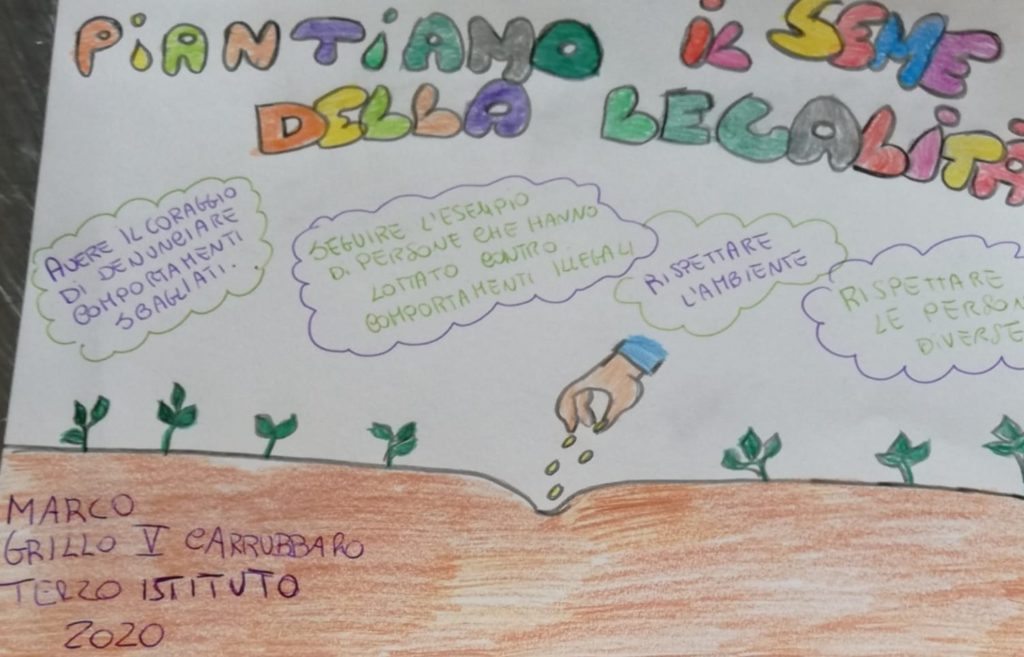 PiANTiAMO iL SEME
DELLA LEGALiTÀ
AVERE IL CORAGGIO
DI DENUNCIARE
COMPORTAMENTI
SBAGLIATI.
SEGUIRE L'ESEMPIO
DI PERSONE CHE HANNO
LOTTATO CONTRO
COMPORTAMENTI ILLEGALI
RISPETTARE
L'AMBIENTE
RISPETTARE
LE PERSON
DIVERSE
MARCO
GRILLO V CARRUBBARO
TERZO ISTITUTO
2020